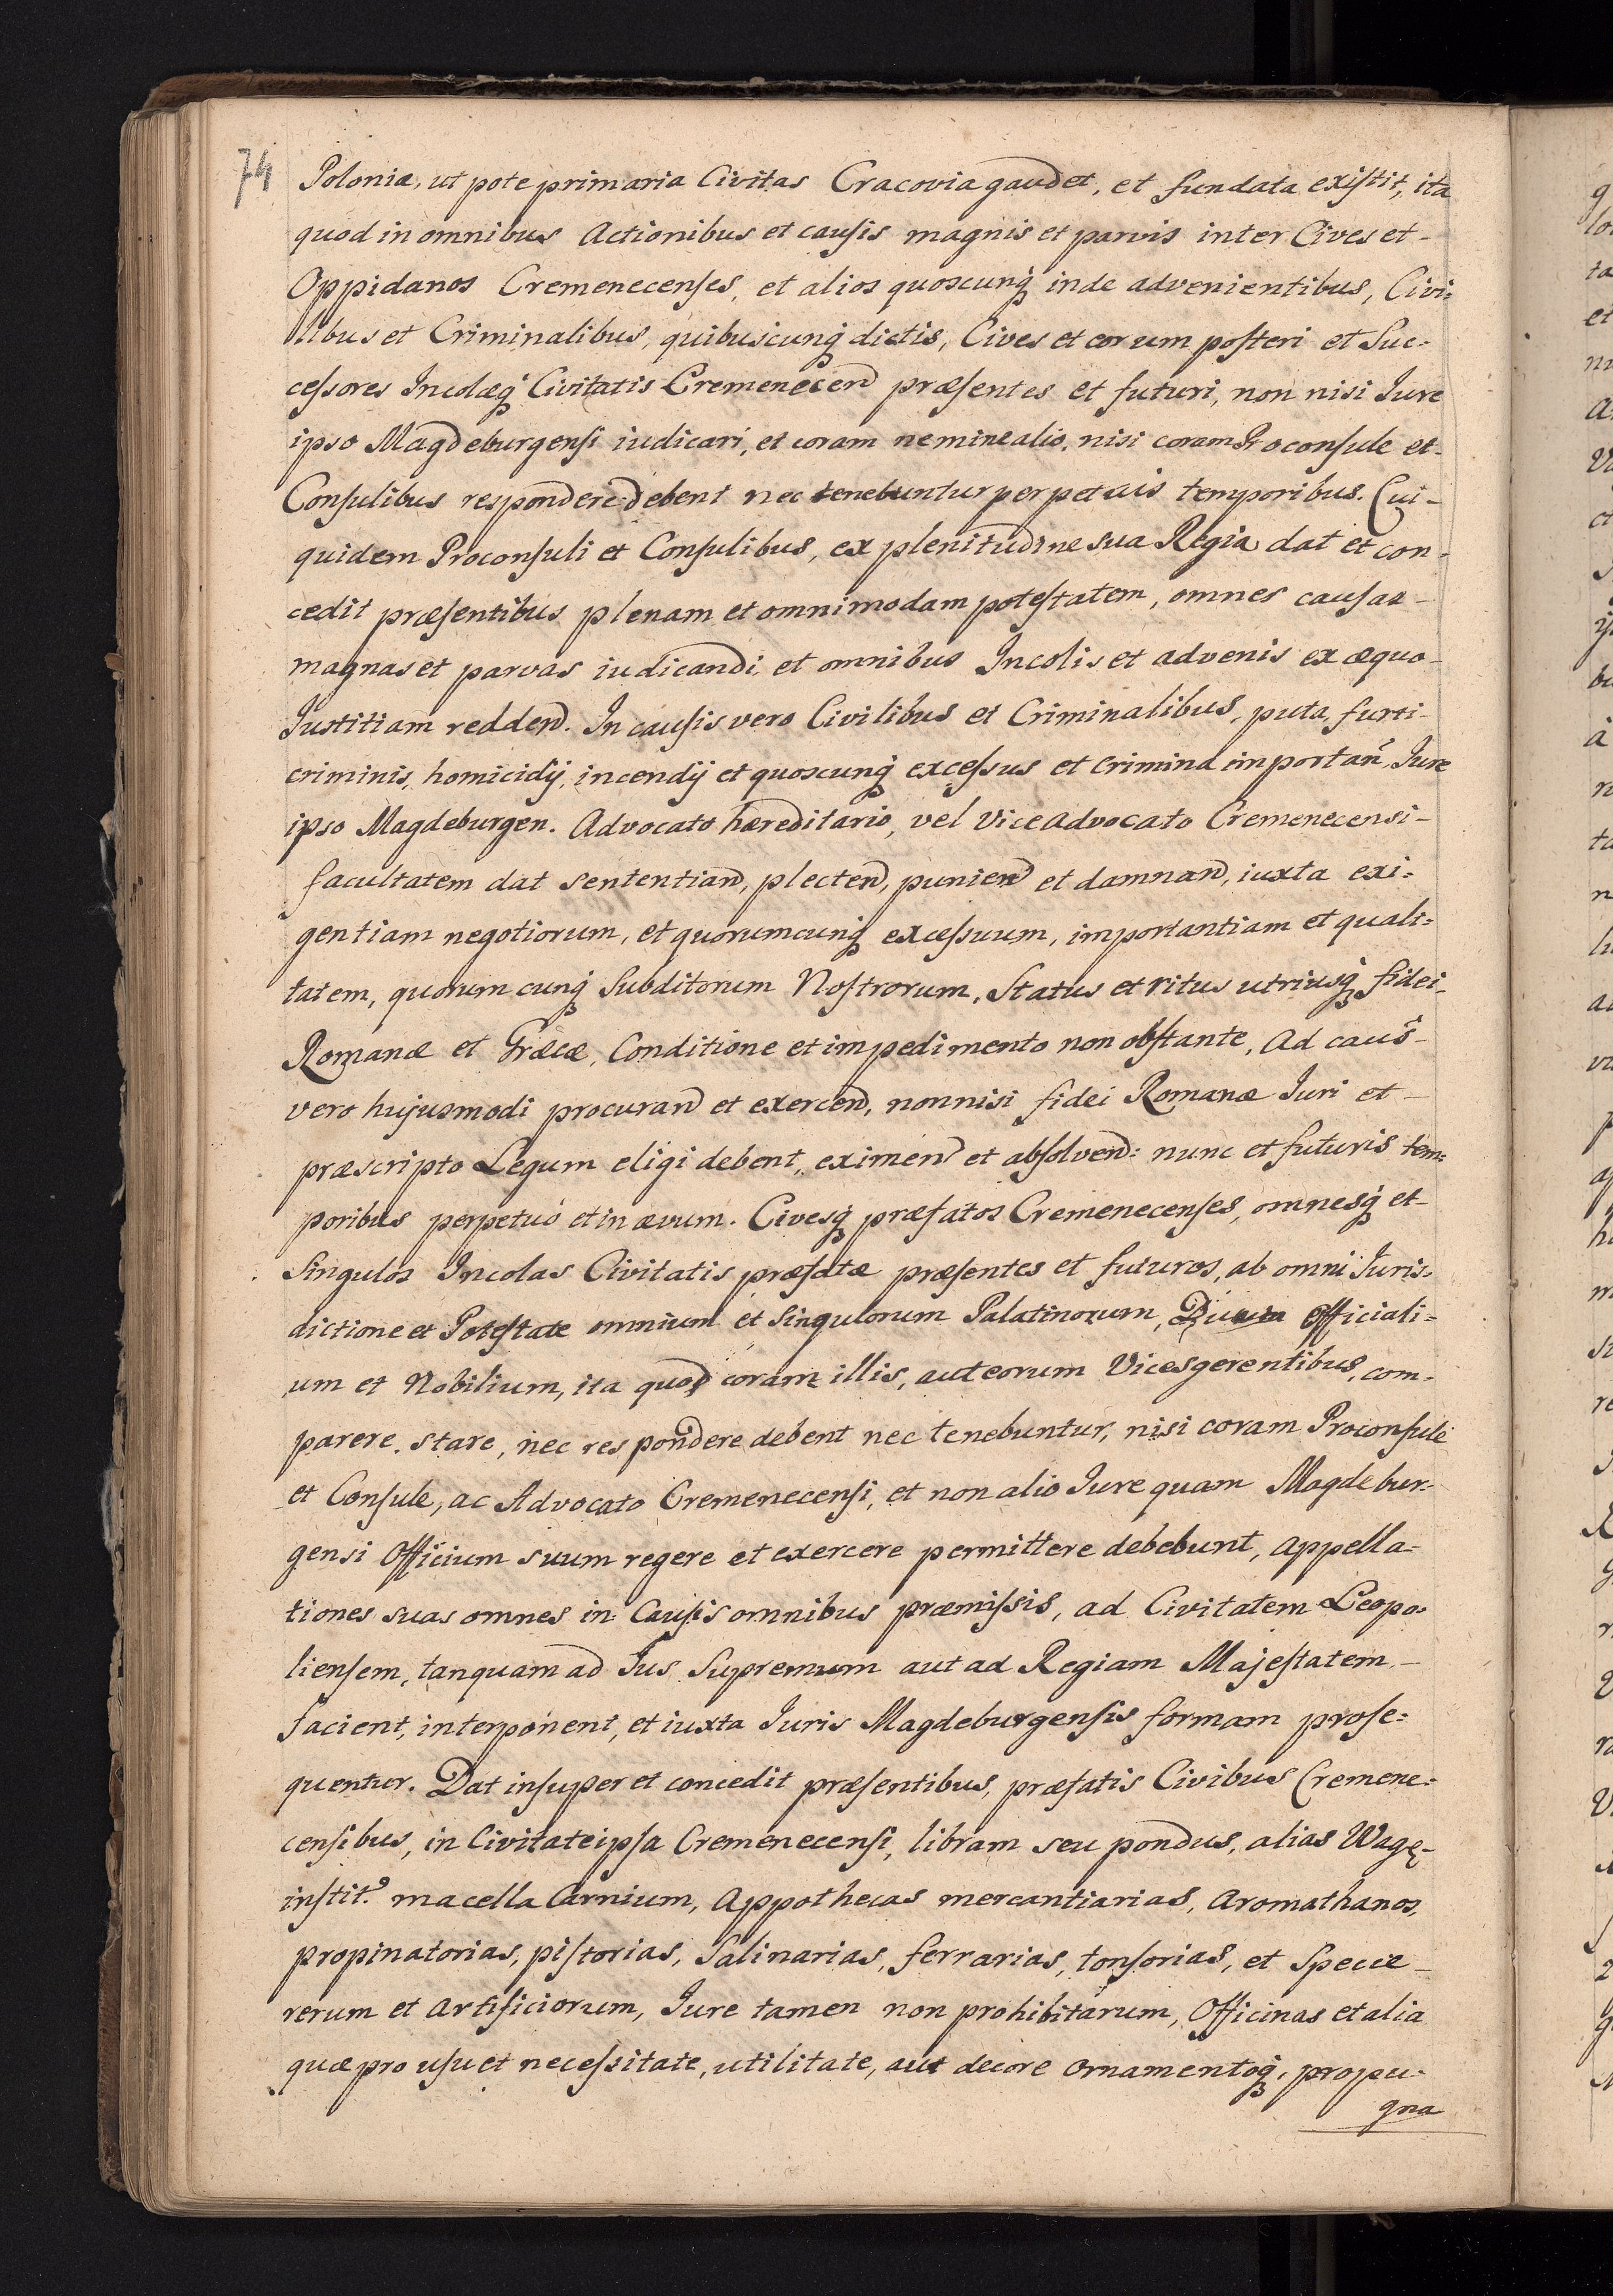 74
Poloniæ, ut pote primaria Civitas Cracovia gaudet, et fundata existit, ita
quod in omnibus Actionibus et causis magnis et parvis inter Cives et-
Oppidanos Cremenecenses, et alios quoscunq inde advenientibus, Civi=
libus et Criminalibus, quibuscunq dictis, Cives et eorum posteri et Suc=
cessores Incolæq Civitatis Cremenecen præsentes et futuri, non nisi Jure
ipso Magdeburgensi iudicari, et coram nemine alio, nisi coram Proconsule et-
Consulibus respondere debent nec tenebuntur perpetuis temporibus. Cui-
quidem Proconsuli et Consulibus, ex plenitudine sua Regia dat et con=
cedit præsentibus plenam et omnimodam potestatem, omnes causas-
magnas et parvas iudicandi, et omnibus Incolis et advenis ex æquo-
Justitiam redden. In causis vero Civilibus et Criminalibus, puta, furti-
criminis, homicidij, incendij et quoscunq excessus et crimina importan, Jure
ipso Magdeburgen. Advocato hæreditario, vel Viceadvocato Cremenecensi-
facultatem dat sententian, plecten, punien et damnan, iuxta exi=
gentiam negotiorum, et quorumcunq excessuum, importantiam et quali=
tatem, quorumcunq Subditorum Nostrorum, Status et ritus utriusq fidei-
Romanæ et Græcæ, Conditione et impedimento non obstante, Ad caus-
vero hujusmodi procuran et exercen, nonnisi fidei Romanæ Juri et-
præscripto Legum eligi debent, eximen et absolven: nunc et futuris tem=
poribus perpetuó et in ævum. Civesq præfatos Cremenecenses, omnesq et-
Singulos Incolas Civitatis præfatæ præsentes et futuros, ab omni Juris=
dictione et Potestate omnium et Singulorum Palatinorum, Officiali=
um et Nobilium, ita quod coram illis, aut eorum Vicesgerentibus, com=
parere, stare, nec respondere debent nec tenebuntur, nisi coram Proconsule
et Consule, ac Advocato Cremenecensi, et non alio Jure quam Magdebur=
gensi Officium suum regere et exercere permittere debebunt, appella=
tiones suas omnes in Causis omnibus præmissis, ad Civitatem Leopo=
liensem, tanquam ad Jus Supremum aut ad Regiam Majestatem-
facient, interponent, et iuxta Juris Magdeburgensis formam prose=
quentur. Dat insuper et concedit præsentibus, præfatis Civibus Cremene=
censibus, in Civitate ipsa Cremenecensi, libram seu pondus, alias Wagę-
instit.? macella Carnium, Appothecas mercantiarias, Aromathanos,
propinatorias, pistorias, Salinarias, ferrarias, tonsorias, et Specie-
rerum et artificiorum, Jure tamen non prohibitarum, Officinas et alia
quæ pro usu et necessitate, utilitate, aut decore ornamentoq, propu=
gna